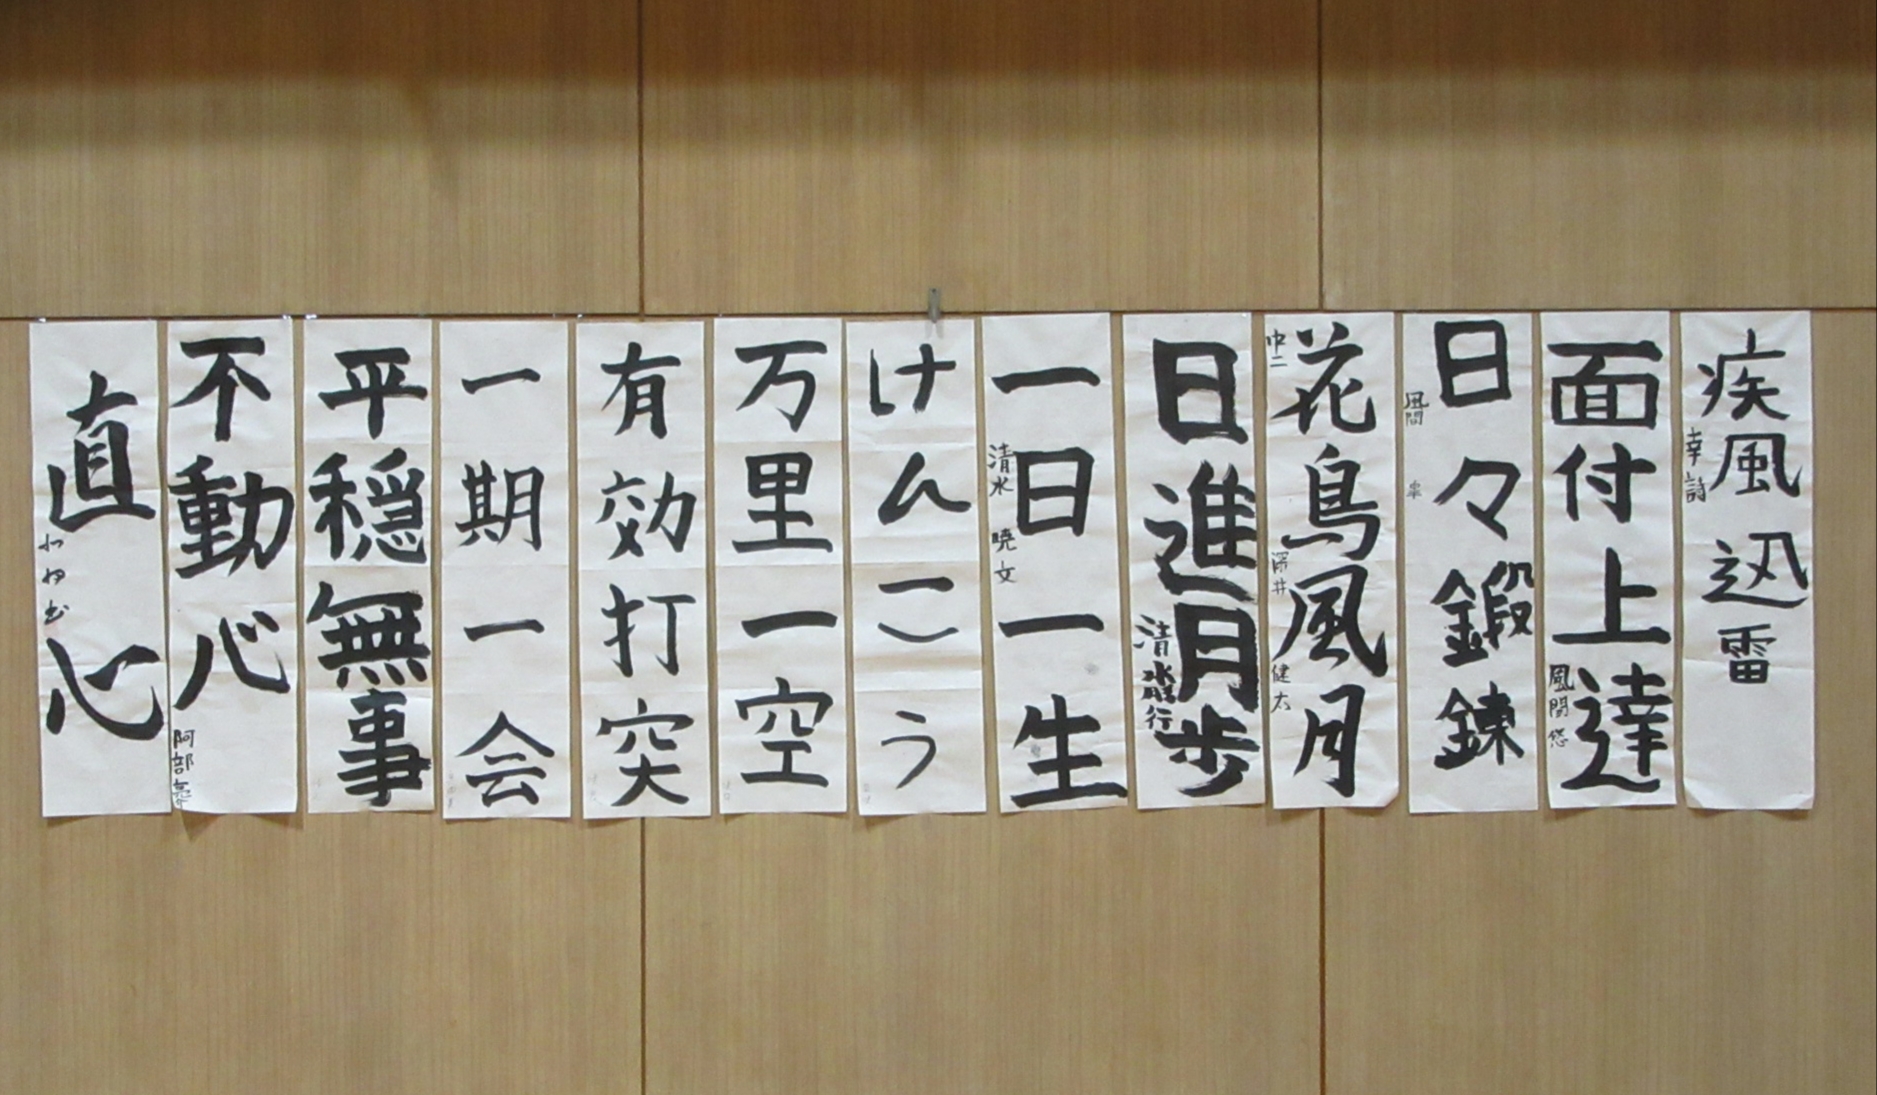 疾風迅雷
幸詩
面付上達
風間 悠
日々鍛錬
風間
花鳥風月
中二 深井 健太
日進月歩
清水 行
一日一生
清水 暁文
けんこう
万里一空
有効打突
一期一会
平穏無事
不動心
阿部
直心